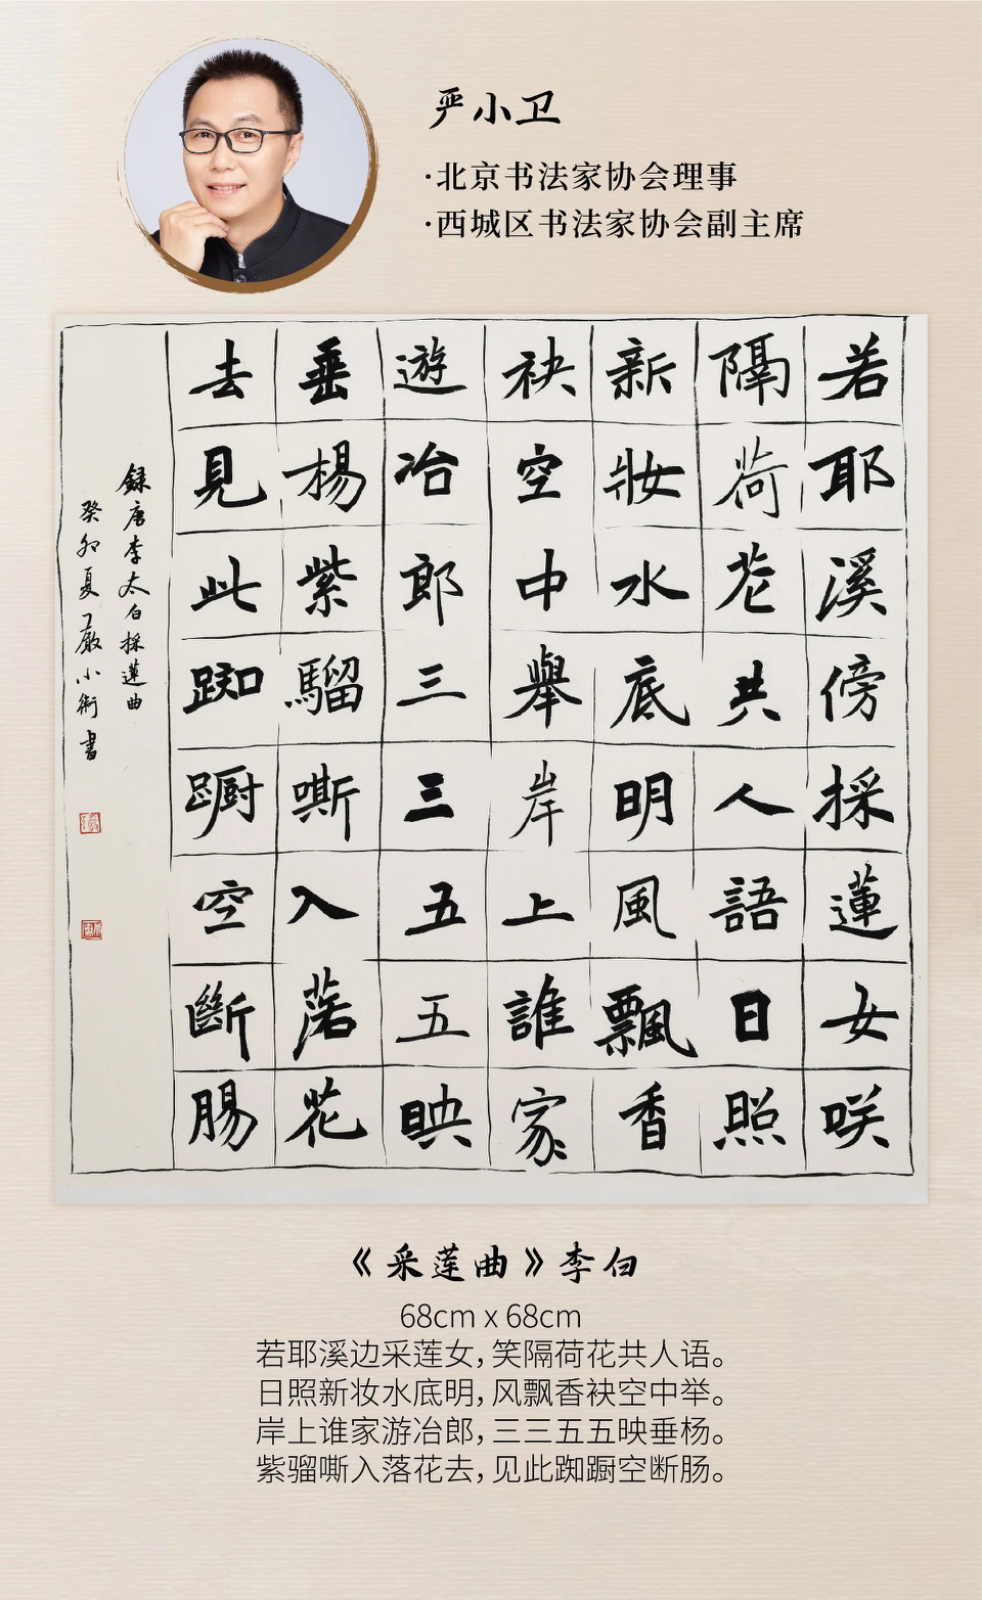 严小卫
·北京书法家协会理事
·西城区书法家协会副主席
若耶溪傍採蓮女咲
隔荷花共人語日照
新妝水底明風飄香
袂空中舉岸上誰家
遊冶郎三三五五映
垂楊紫騮嘶入落花
去見此踟躕空斷腸
録唐李太白採蓮曲
癸卯夏嚴小衛書
《采莲曲》李白
68cm x 68cm
若耶溪边采莲女，笑隔荷花共人语。
日照新妆水底明，风飘香袂空中举。
岸上谁家游冶郎，三三五五映垂杨。
紫骝嘶入落花去，见此踟蹰空断肠。